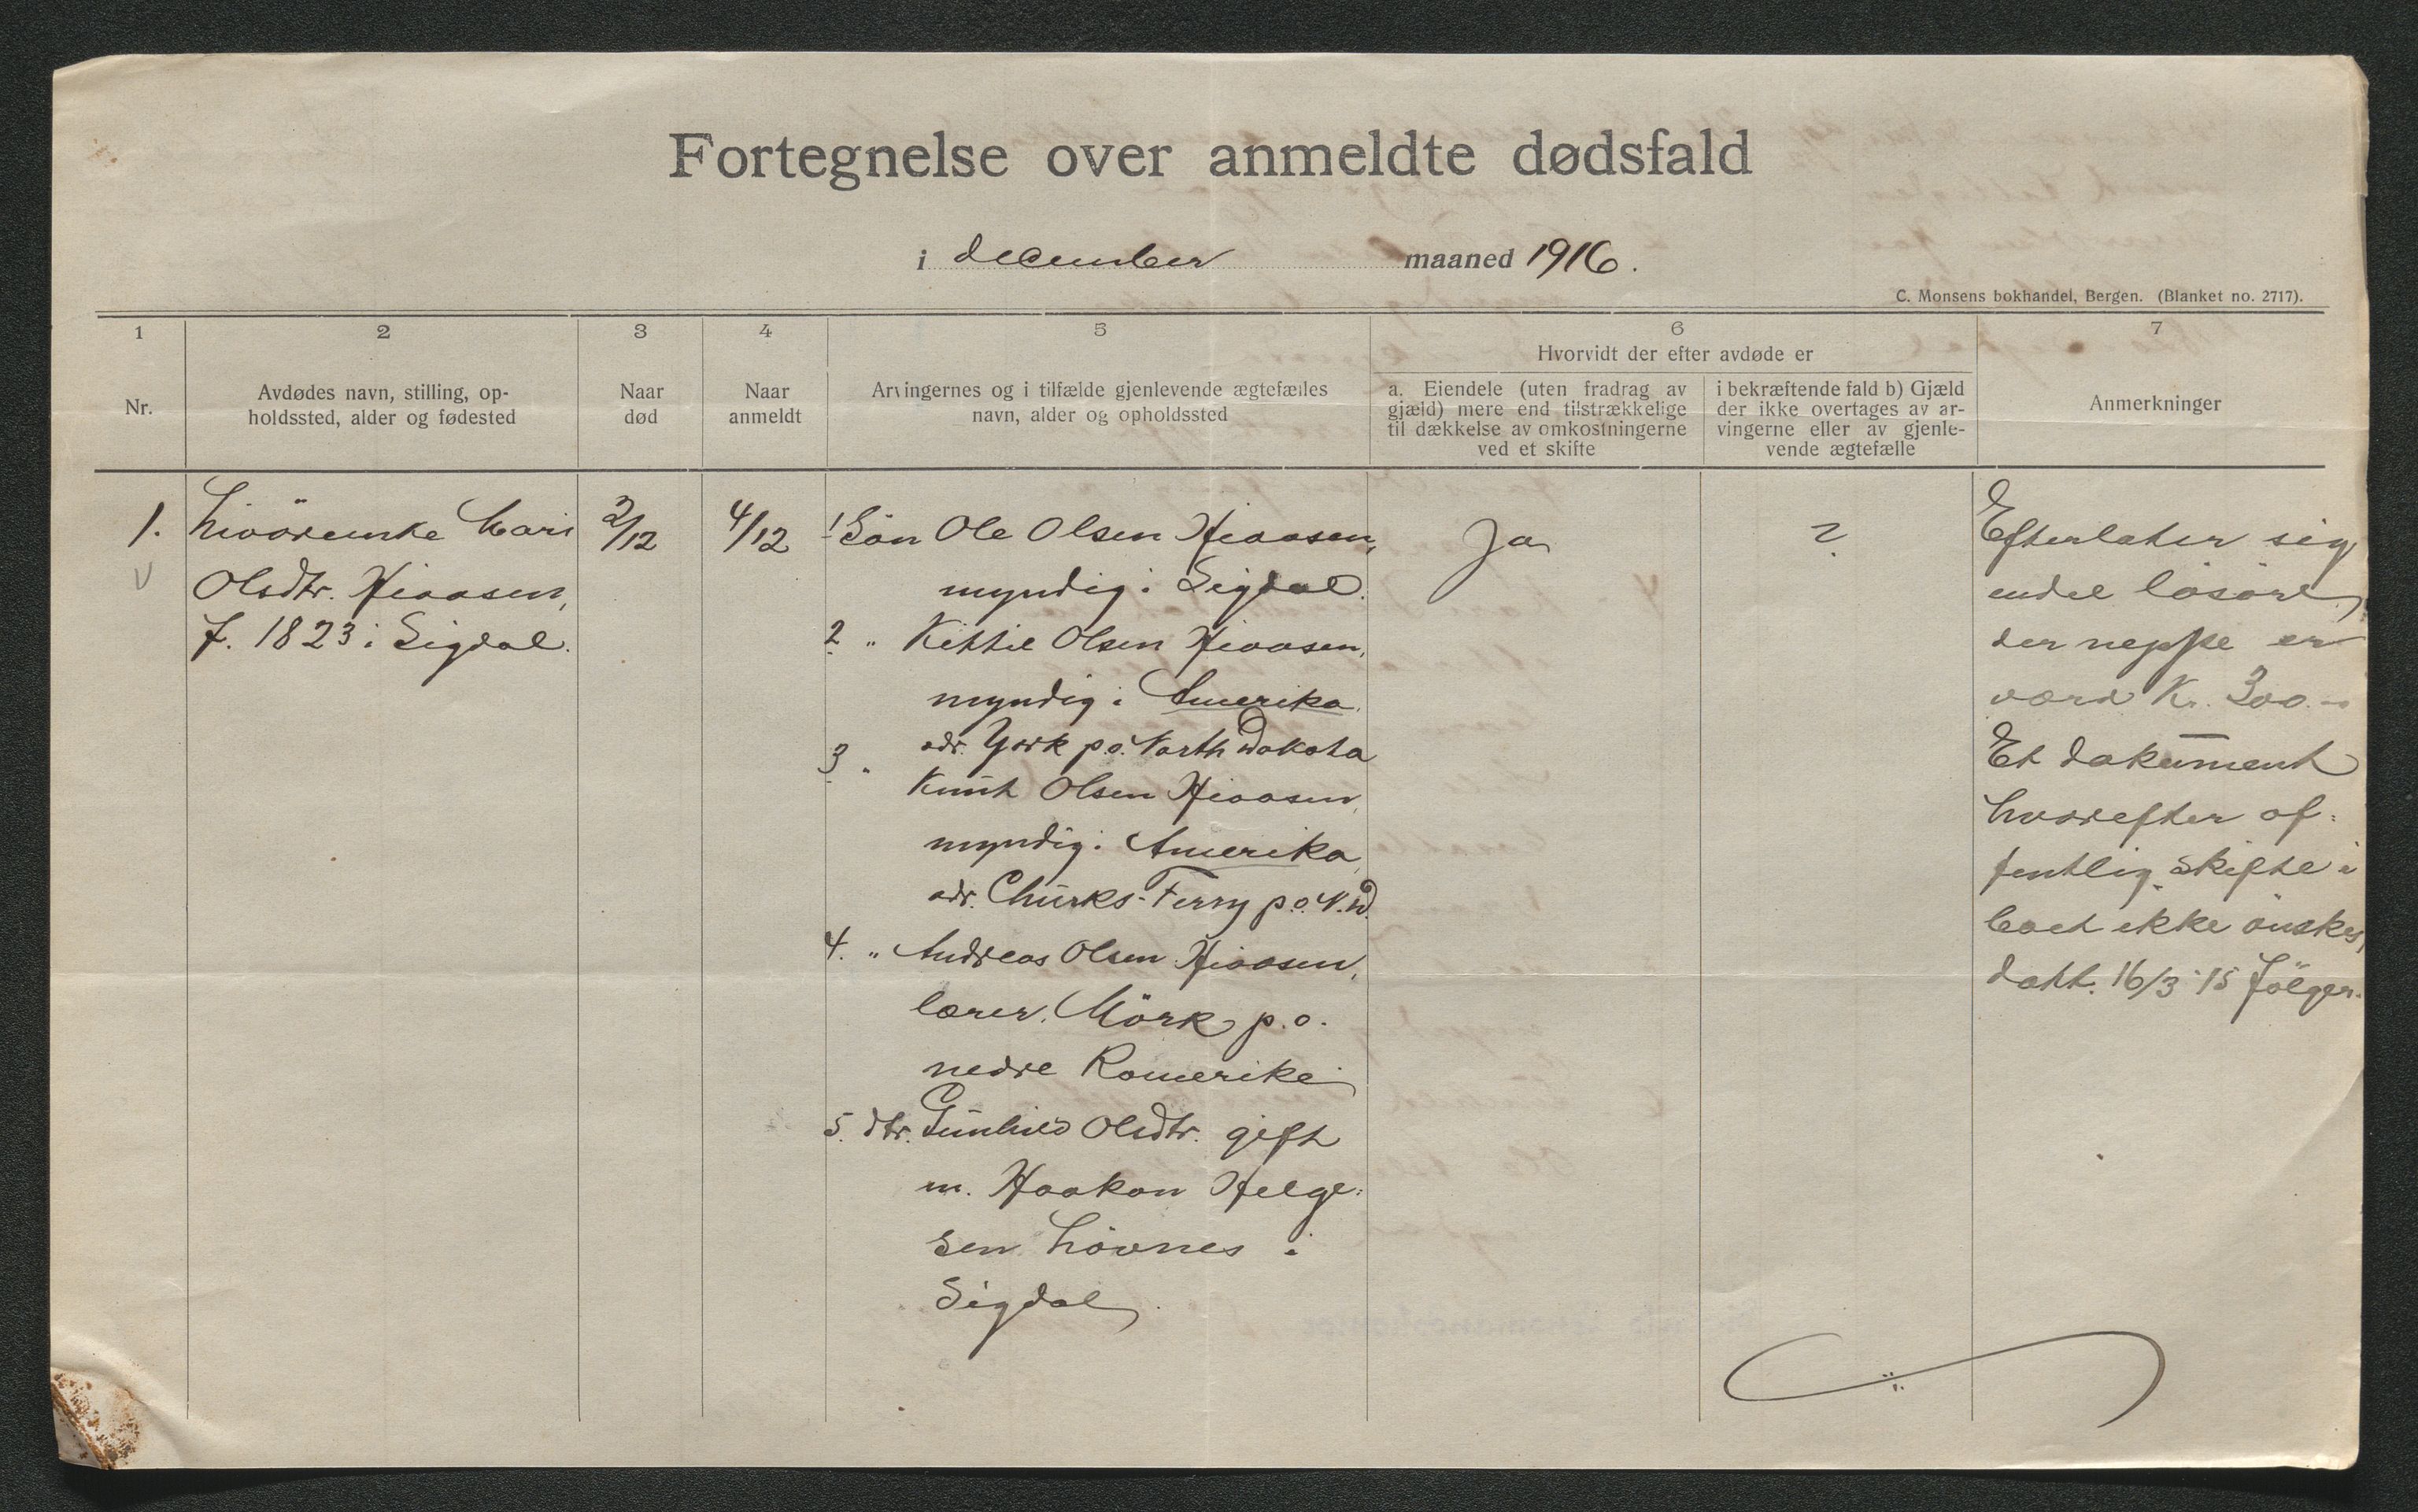 Fortegnelse over anmeldte dødsfald
i december maaned 1916.
C. Monsens bokhandel, Bergen. (Blanket no. 2717).
1
2
3
4
5
6
7
Nr.
Avdødes navn, stilling, op-
holdssted, alder og fødested
Naar
død
Naar
anmeldt
Arvingernes og i tilfælde gjenlevende ægtefælles
navn, alder og opholdssted
Hvorvidt der efter avdøde er
a. Eiendele (uten fradrag av
gjæld) mere end tilstrækkelige
til dækkelse av omkostningerne
ved et skifte
i bekræftende fald b) Gjæld
der ikke overtages av ar-
vingerne eller av gjenle-
vende ægtefælle
Anmerkninger
1.
Livöreenke Mari
Olsdtr. Hiaasen,
f. 1823 i Sigdal.
2/12
4/12
1 Sön Ole Olsen Hiaasen,
myndig i Sigdal.
2 " Kittil Olsen Hiaasen,
myndig i Amerika.
adr. York p.o. North Dakota
3 "
Knut Olsen Hiaasen,
myndig i Amerika,
adr. Churks-Ferry p.o. N.D.
4. " Andreas Olsen Hiaasen,
lærer, Mörk p.o.
nedre Romerike
5. dtr. Gunhild Olsdtr. gift
m. Haakon Helge-
sen Lövnes i
Sigdal.
Ja
?
Efterlater sig
endel lösöre,
der neppe er
værd Kr. 300.-
Et dokument
hvorefter of-
fentlig skifte i
boet ikke önskes,
datt. 16/3 15 fölger.